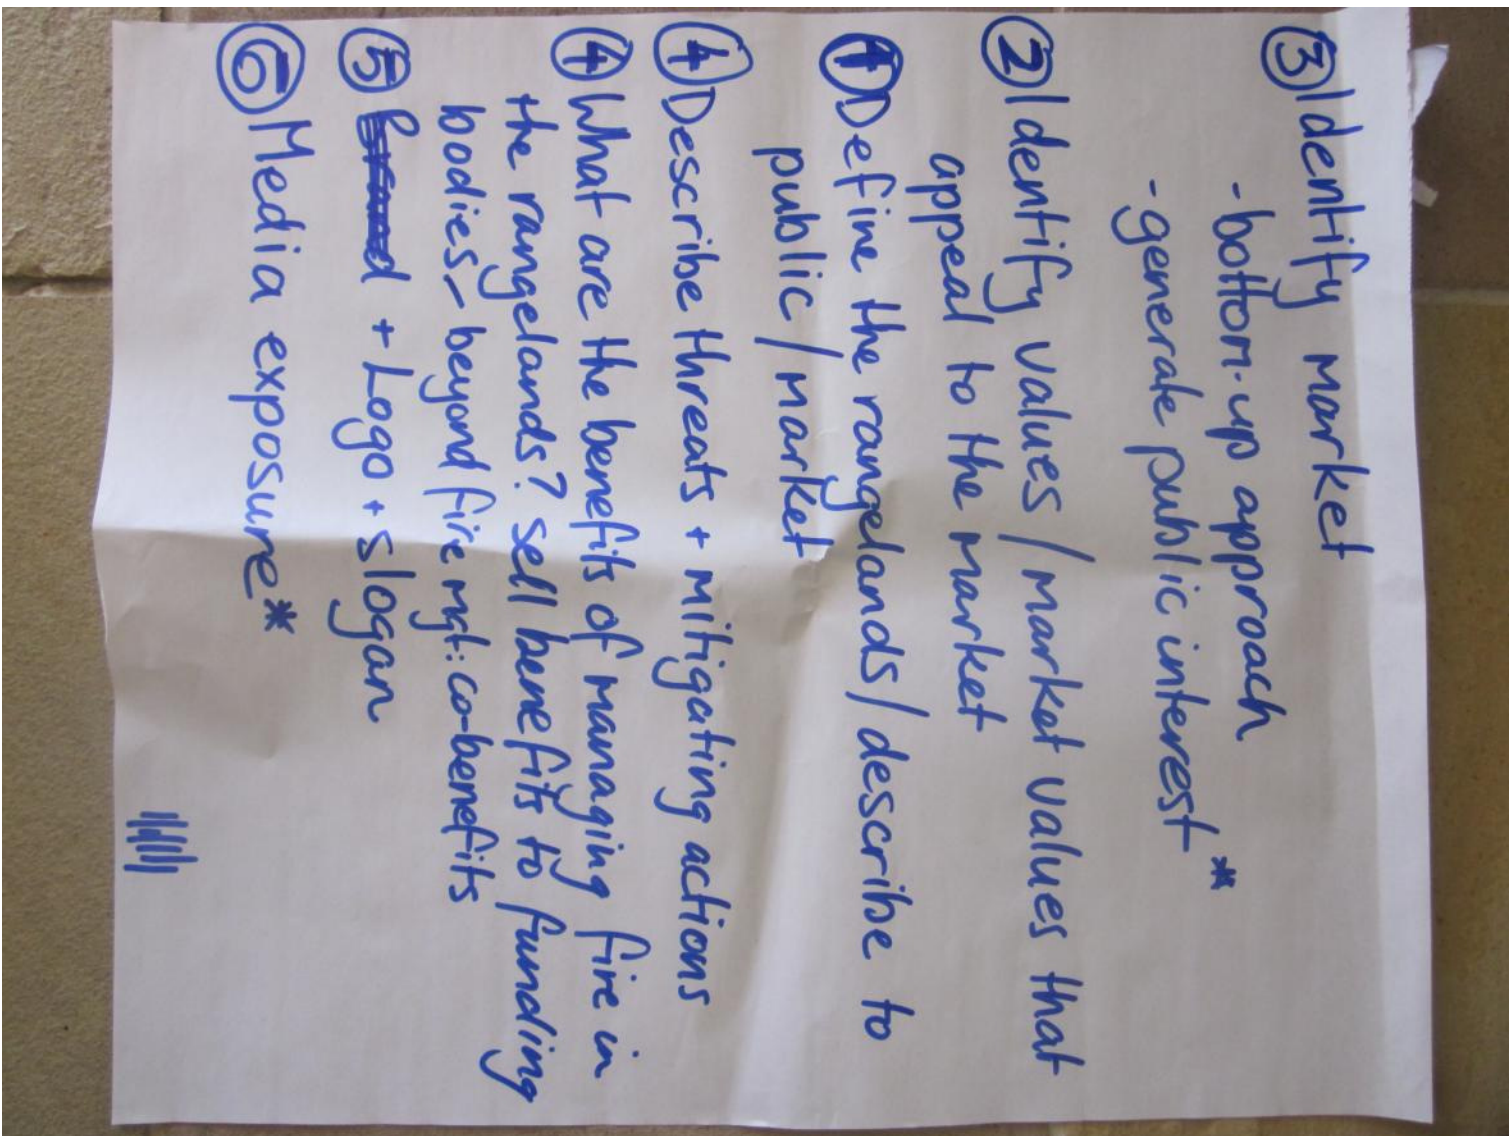 ③ Identify market
- bottom-up approach
- generate public interest*
② Identify values / market values that
appeal to the market
① Define the rangelands / describe to
public / market
④ Describe threats + mitigating actions
④ What are the benefits of managing fire in
the rangelands? sell benefits to funding
bodies - beyond fire mgt: co-benefits
⑤ + Logo + slogan
⑥ Media exposure*